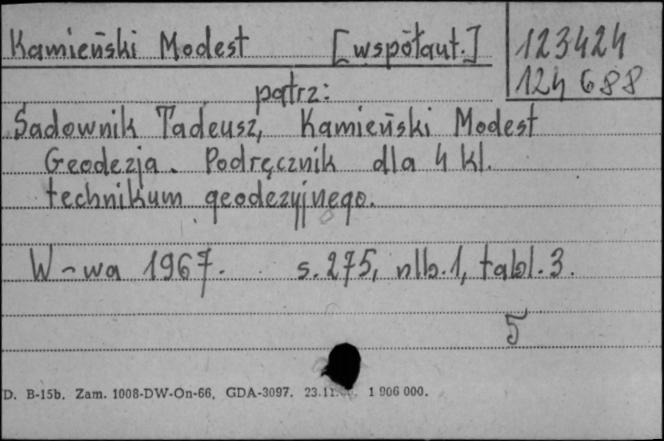 Kamieński Modest [współaut.] 123424
124688
patrz:
Sadownik Tadeusz, Kamieński Modest
Geodezja. Podręcznik dla 4 kl.
technikum geodezyjnego.
W-wa 1967. s. 275, nlb. 1, tabl. 3.
5
D. B-15b. Zam. 1008-DW-On-66. GDA-3097. 23.11. 1 906 000.